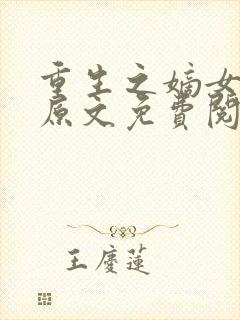 重生之嫡女
原文免費閱
王慶蓮